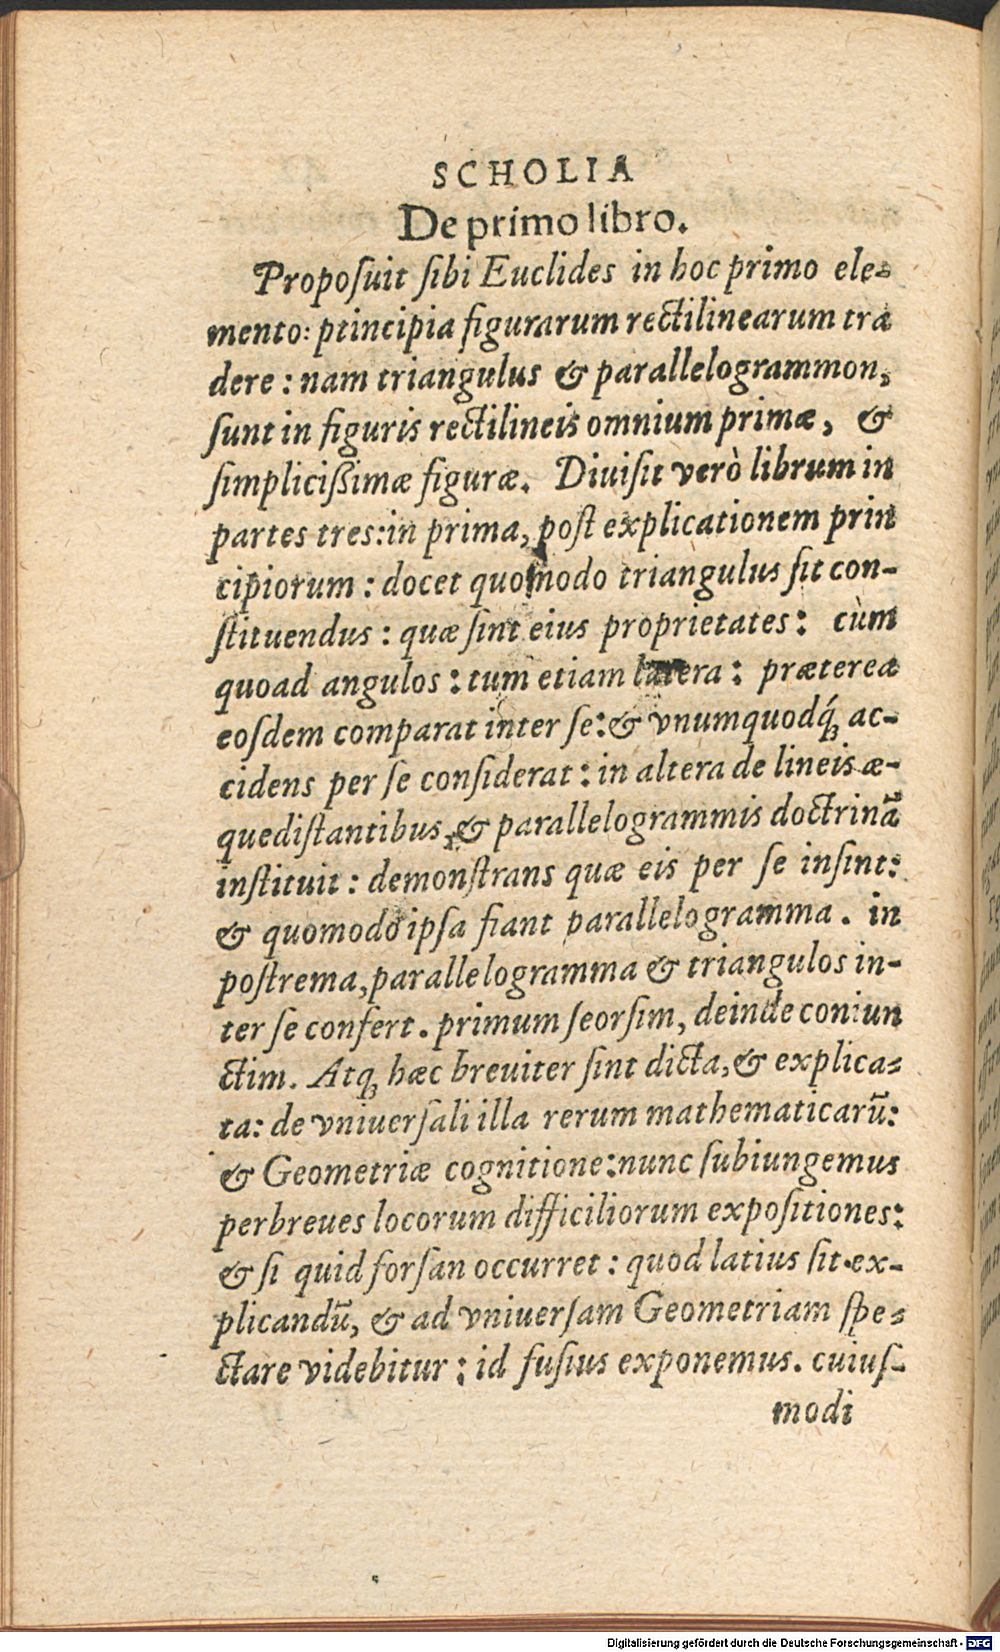 SCHOLIA
De primo libro.
Propoſuit ſibi Euclides in hoc primo ele-
mento: ptincipia figurarum rectilinearum tra
dere : nam triangulus & parallelogrammon,
ſunt in figuris rectilineis omnium primæ, &
ſimplicißimæ figuræ. Diuiſit verò librum in
partes tres: in prima, poſt explicationem prin
cipiorum : docet quomodo triangulus ſit con-
ſtituendus : quæ ſint eius proprietates : cùm
quoad angulos : tum etiam latera : præterea
eoſdem comparat inter ſe: & vnumquodq́; ac-
cidens per ſe conſiderat : in altera de lineis æ-
quediſtantibus, & parallelogrammis doctrinã
inſtituit : demonſtrans quæ eis per ſe inſint:
& quomodo ipſa fiant parallelogramma. in
poſtrema, parallelogramma & triangulos in-
ter ſe confert. primum ſeorſim, deinde coniun
ctim. Atq; hæc breuiter ſint dicta, & explica-
ta: de vniuerſali illa rerum mathematicarũ:
& Geometriæ cognitione: nunc ſubiungemus
perbreues locorum difficiliorum expoſitiones:
& ſi quid forſan occurret : quod latius ſit ex-
plicandũ, & ad vniuerſam Geometriam ſpe-
ctare videbitur : id fuſius exponemus. cuiuſ-
modi
Digitalisierung gefördert durch die Deutsche Forschungsgemeinschaft - DFG